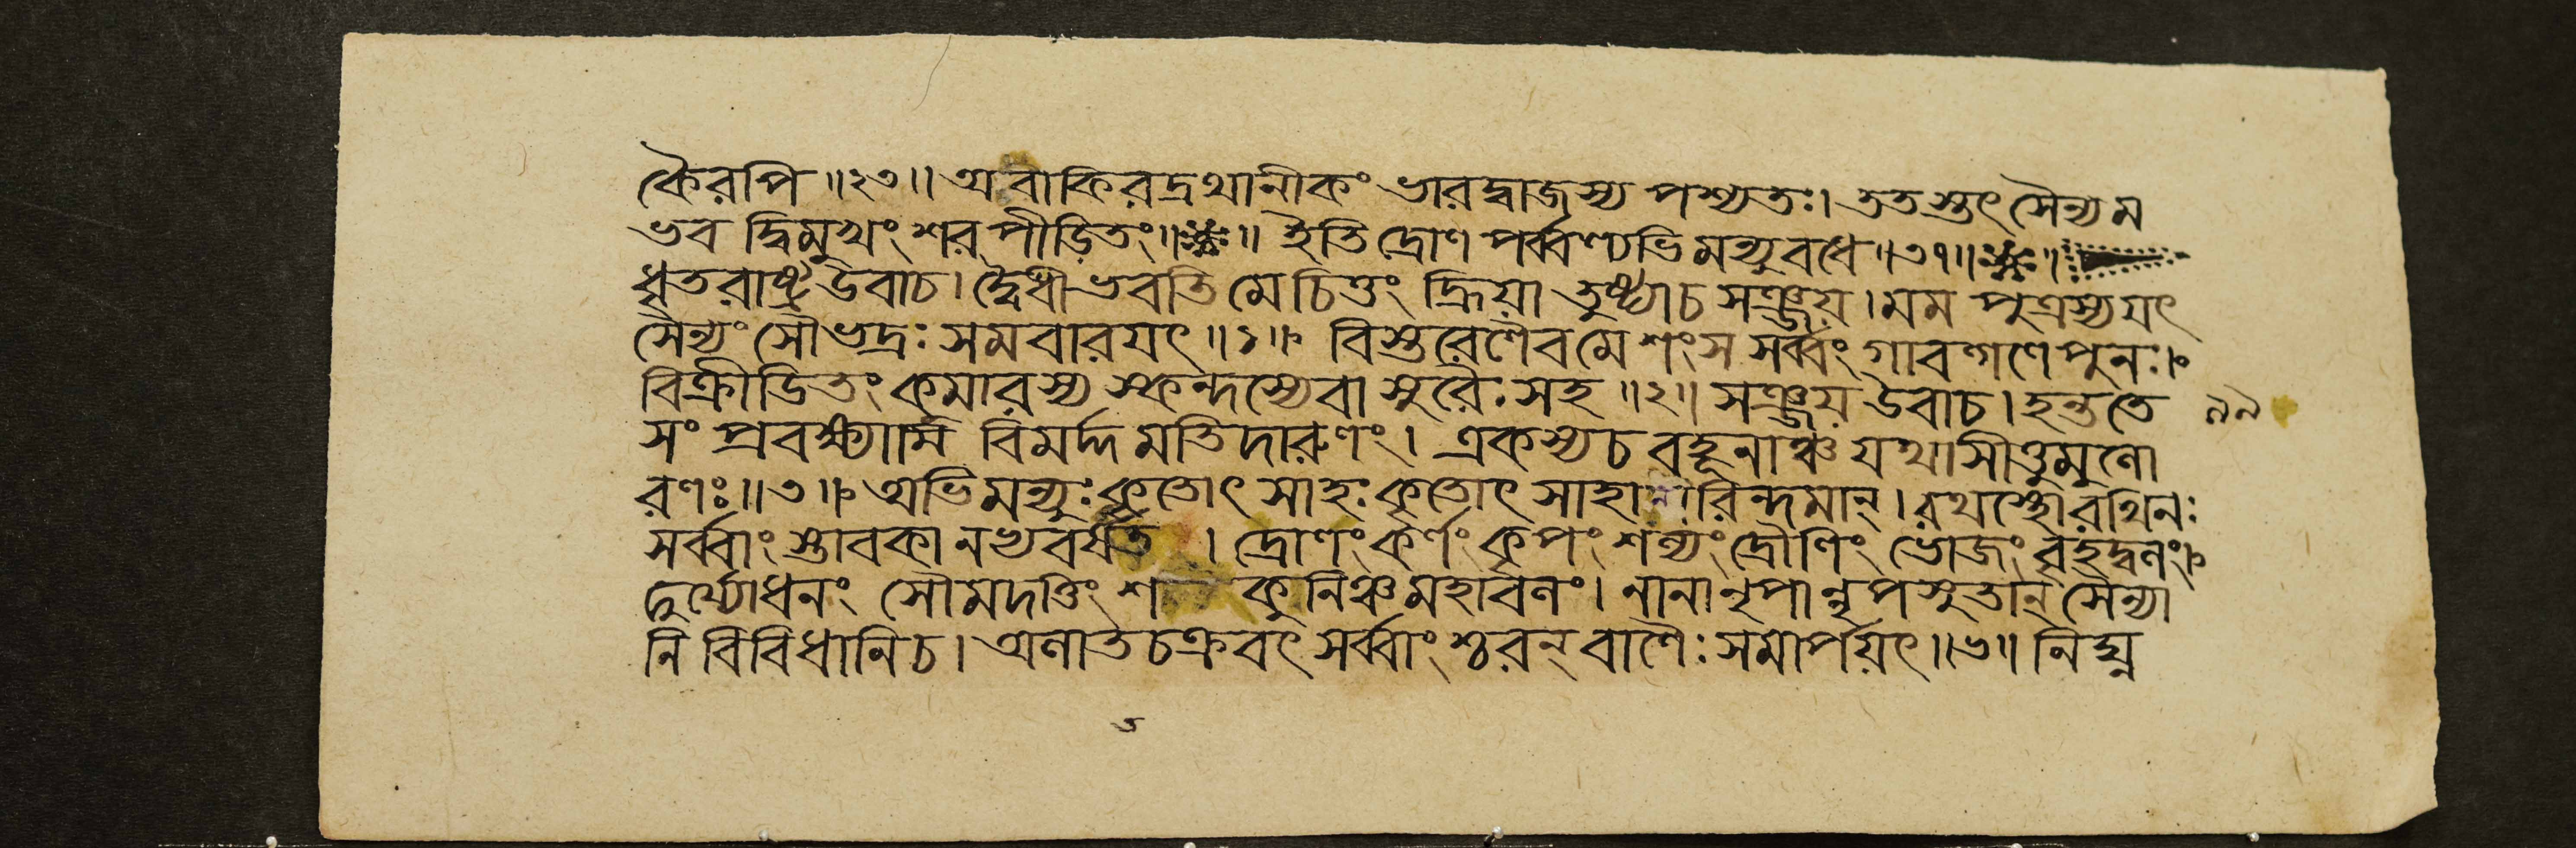 কৈরপি ॥২৩॥ অবাকিরদ্রথানীকং ভারদ্বাজস্য পশ্যতঃ। ততস্তৎ সৈন্যম
ভব দ্বিমুখং শরপীড়িতং॥※॥ ইতি দ্রোণপর্ব্বণ্যভিমন্যুবধে ॥৩৭॥※॥
ধৃতরাষ্ট্র উবাচ। দ্বৈধীভবতি মে চিত্তং হ্রিয়া তুষ্ট্যা চ সঞ্জয়। মম পুত্রস্য যৎ
সৈন্যং সৌভদ্রঃ সমবারযৎ ॥১॥ বিস্তরেণৈব মে শংস সর্ব্বং গাবল্গণে পুনঃ।
বিক্রীডিতং কুমারস্য স্কন্দস্যেবাসুরৈঃ সহ ॥২॥ সঞ্জয় উবাচ। হন্ত তে
সং প্রবক্ষ্যামি বিমর্দ্দমতিদারুণং। একস্য চ বহূনাঞ্চ যথাসীত্তুমুলো
রণঃ॥৩॥ অভিমন্যুঃ কৃতোৎসাহঃ কৃতোৎসাহানরিন্দমান্। রথস্থো রথিনঃ
সর্ব্বাংস্তাবকানভ্যবর্ষত । দ্রোণং কর্ণং কৃপং শল্যং দ্রৌণিং ভোজং বৃহদ্বলং।
দুর্য্যোধনং সৌমদত্তিং শ কুনিঞ্চ মহাবলং। নানানৃপান্নৃপসুতান্ সৈন্যা
নি বিবিধানি চ। অলাতচক্রবৎ সর্ব্বাংশ্চরন্ বাণৈঃ সমার্পয়ৎ॥৬॥ নিঘ্ন